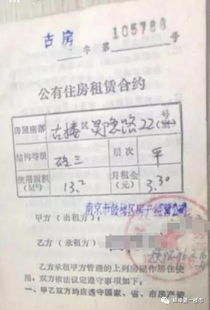 古房 字第 105788 号
公有住房租赁合约
房屋座落 古楼区 路22号
结构等级 砖三 层次 平
使用面积(M²) 13.2 月租金(元) 3.30
南京市鼓楼区房产经营公司
甲方（出租方）：
乙方（承租方）：
乙方承租甲方管理的上列房屋作居住使
用，双方依议定遵守事项如下：
一、甲乙双方均应遵守国家、省、市房产